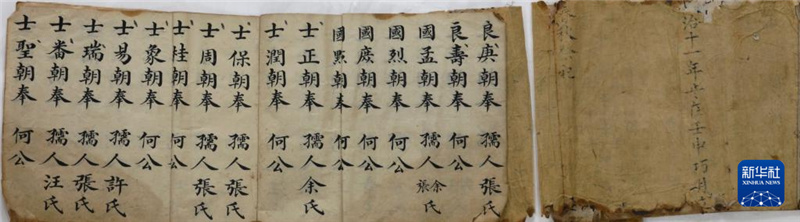 治十一年歲在壬申巧月
良庚朝奉 孺人張氏
良壽朝奉 何公
國孟朝奉 孺人余張氏
國烈朝奉 何公
國慶朝奉 何公
國㸃朝奉 何公
士正朝奉 孺人余氏
士潤朝奉 何公
士保朝奉 孺人張氏
士周朝奉 孺人張氏
士桂朝奉 何公
士象朝奉 何公
士易朝奉 孺人許氏
士瑞朝奉 孺人張氏
士番朝奉 孺人汪氏
士聖朝奉 何公
新华社
XINHUA NEWS